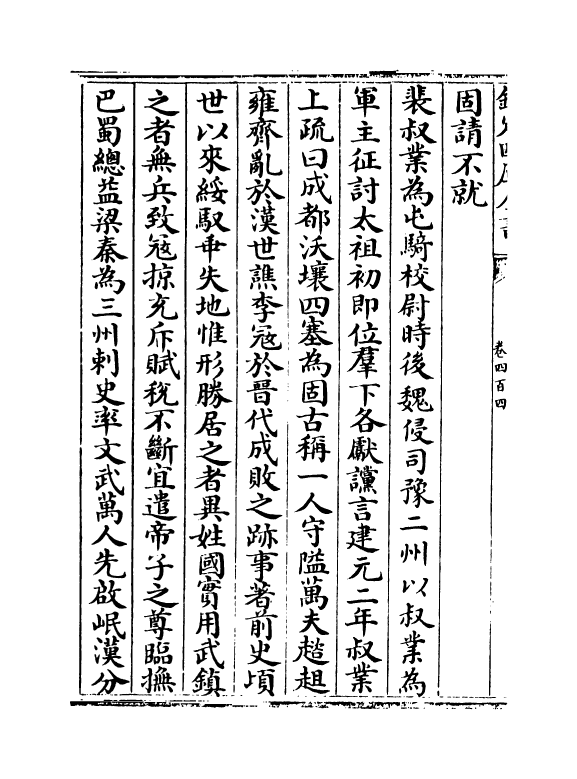 欽定四庫全書
卷四百四
固請不就
裴叔業為屯騎校尉時後魏侵司豫二州以叔業為
軍主征討太祖初即位羣下各獻讜言建元二年叔業
上疏曰成都沃壤四塞為固古稱一人守隘萬夫趑趄
雍齊亂於漢世譙李寇於晉代成敗之跡事著前史頃
世以來綏馭乖失地惟形勝居之者異姓國實用武鎮
之者無兵致寇掠充斥賦稅不斷宜遣帝子之尊臨撫
巴蜀總益梁秦為三州刺史率文武萬人先啟岷漢分